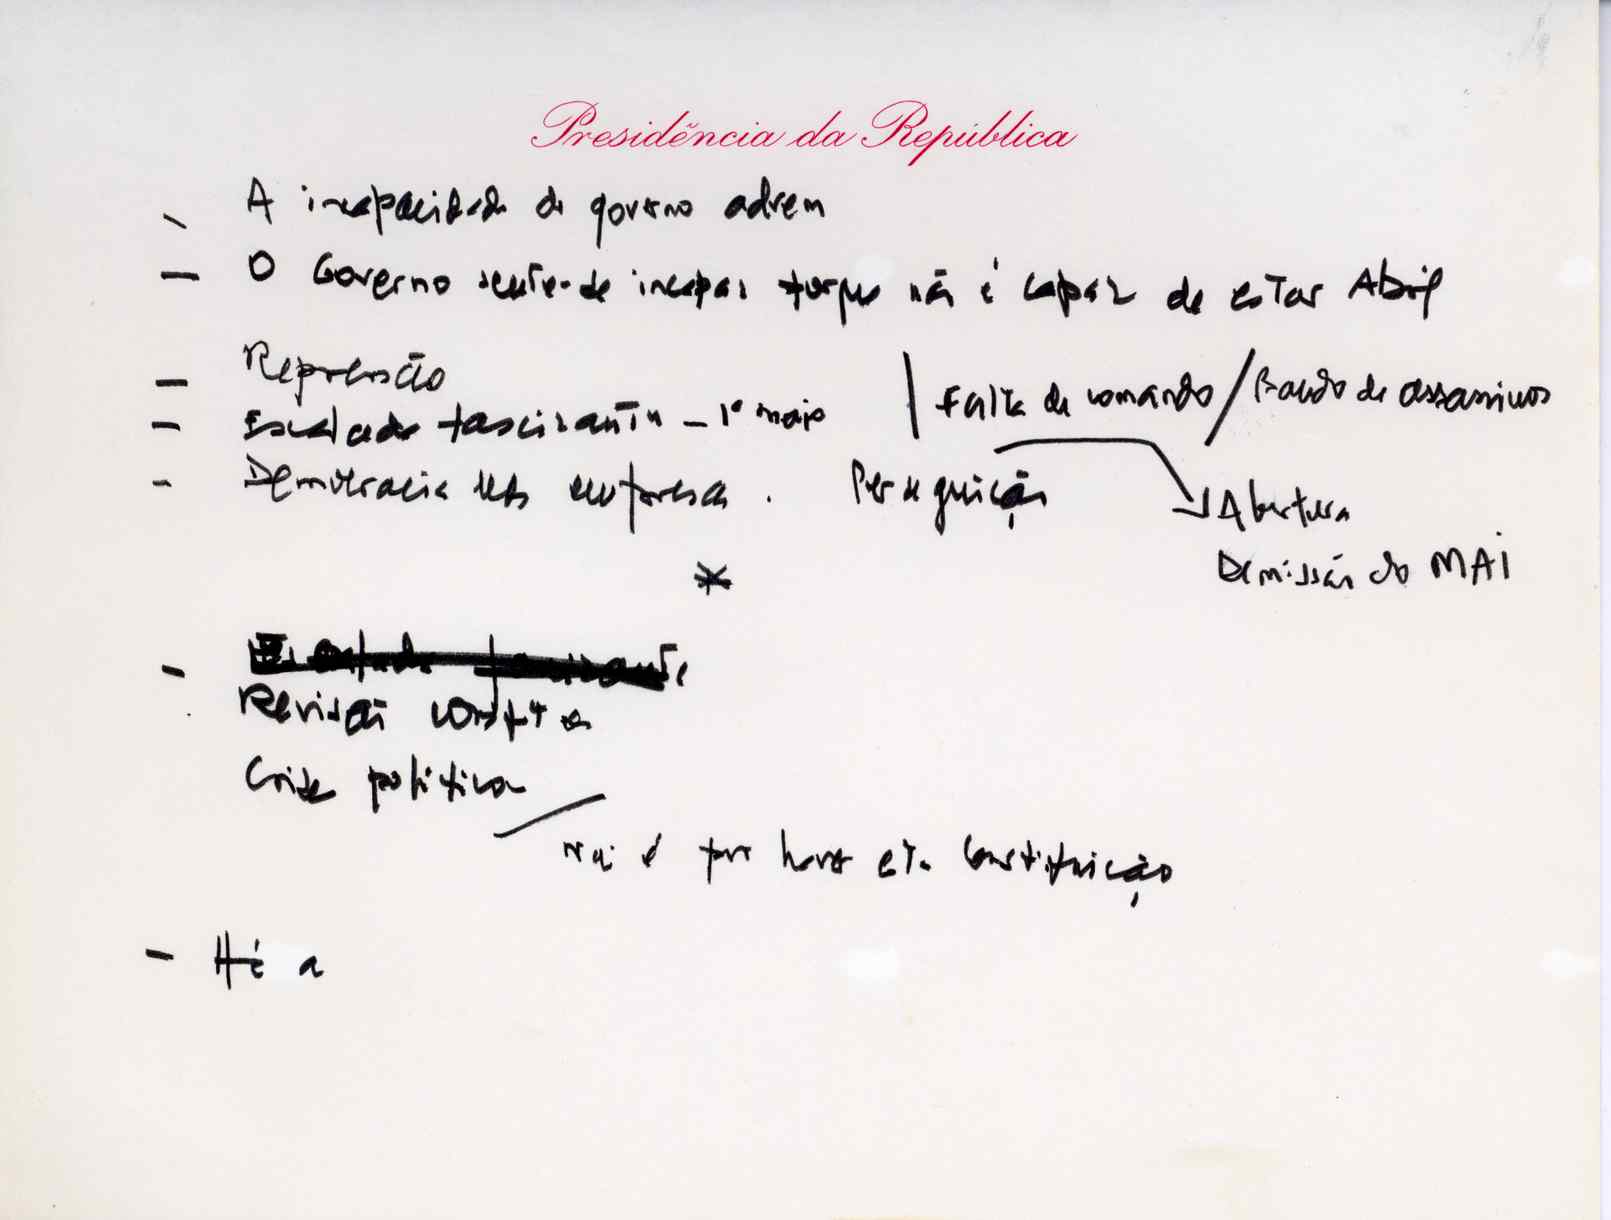 Presidência da República
- A incapacidade do governo advem
- O Governo sente-se incapaz porque não é capaz de estar Abril
- Repressão
| Falta de comando / Bando de assassinos
- Escalada fascizante - 1º maio
- Democracia nas empresas. Perseguição
Abertura
Demissão do MAI
*
- Revisão
Crise politica
não é por haver esta Constituição
- Há a